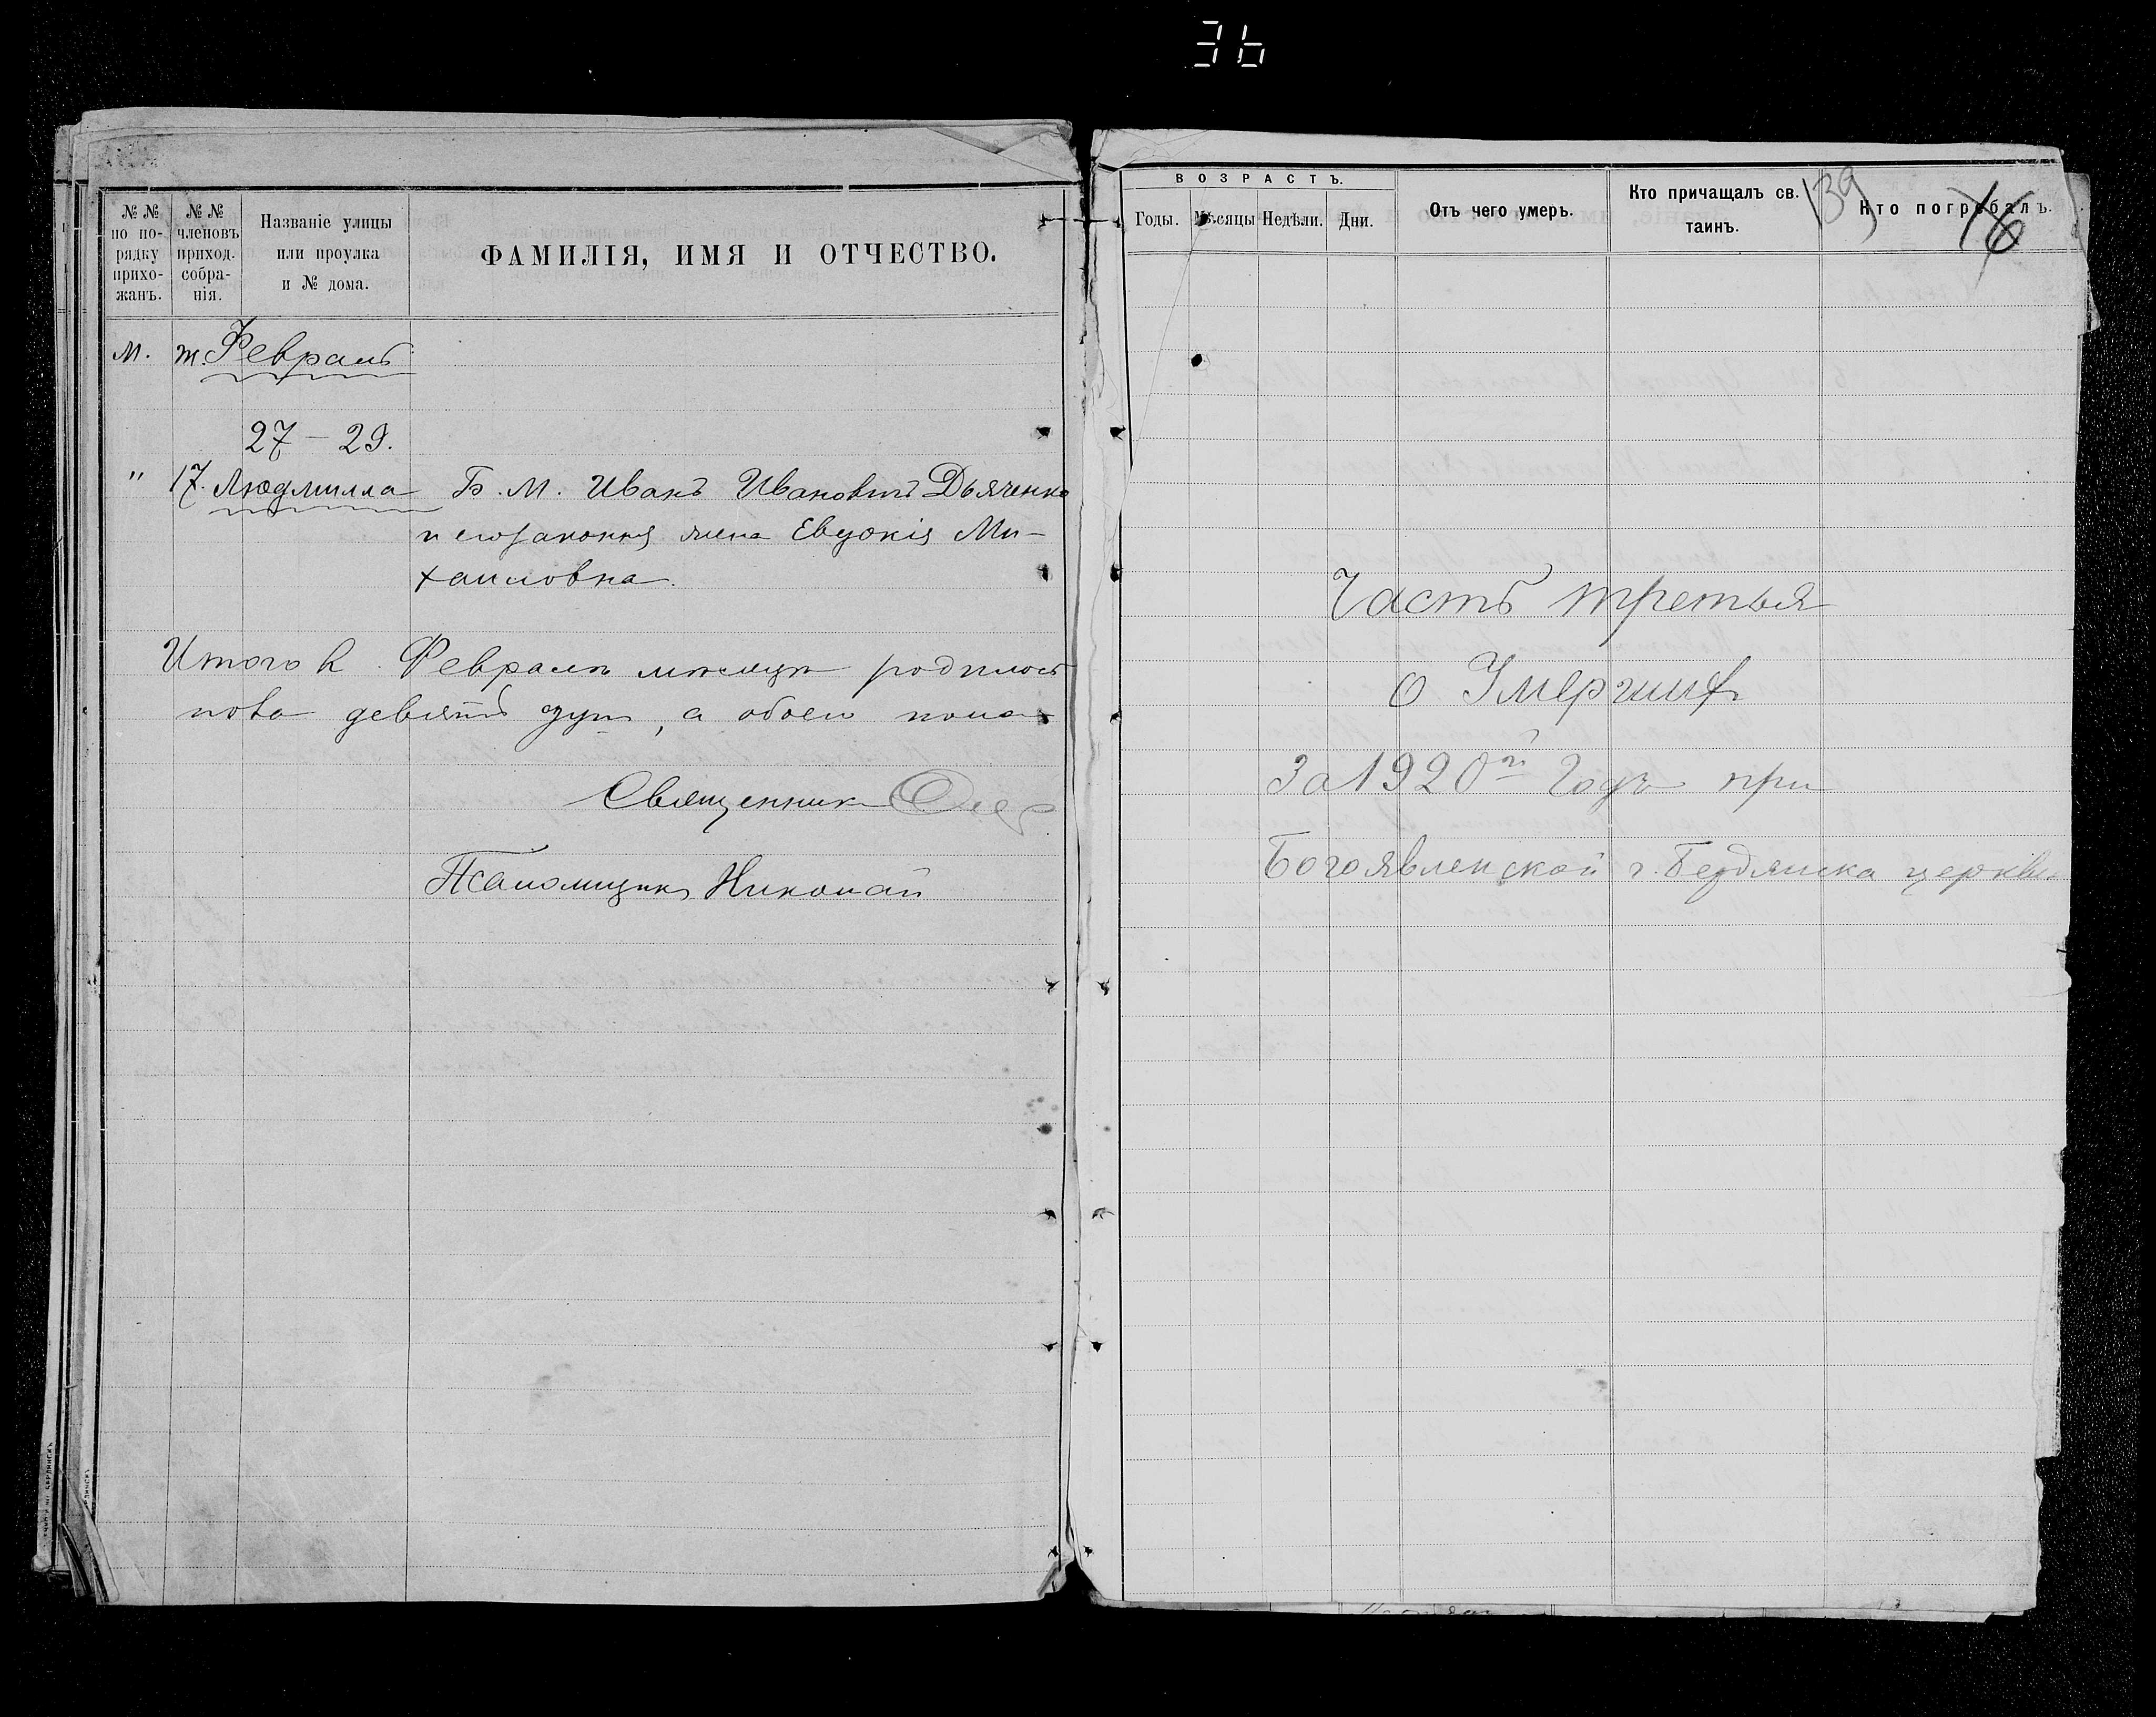 36
№№ по по-рядку прихо-жанъ.
№№ членовъ приход. собра-нія.
Названіе улицы или проулка и № дома.
ФАМИЛІЯ, ИМЯ И ОТЧЕСТВО.
м. ж. Февраль
27 – 29.
" 17. Людмилла Б. М. Иванъ Ивановичъ Дьяченко
и его законная жена Евдокія Ми-
хаиловна.
Итого в Февралѣ мѣсяцѣ родилось
пола девять душ, а обоего пола
Священник
Псаломщикъ Николай
ВОЗРАСТЪ.
Годы. Мѣсяцы Недѣли. Дни.
Отъ чего умеръ.
Кто причащалъ св. таинъ.
139
Кто погребалъ.
16
Часть третья
о Умерших
За 1920й Годъ при
Богоявленской г. Бердянска церкви